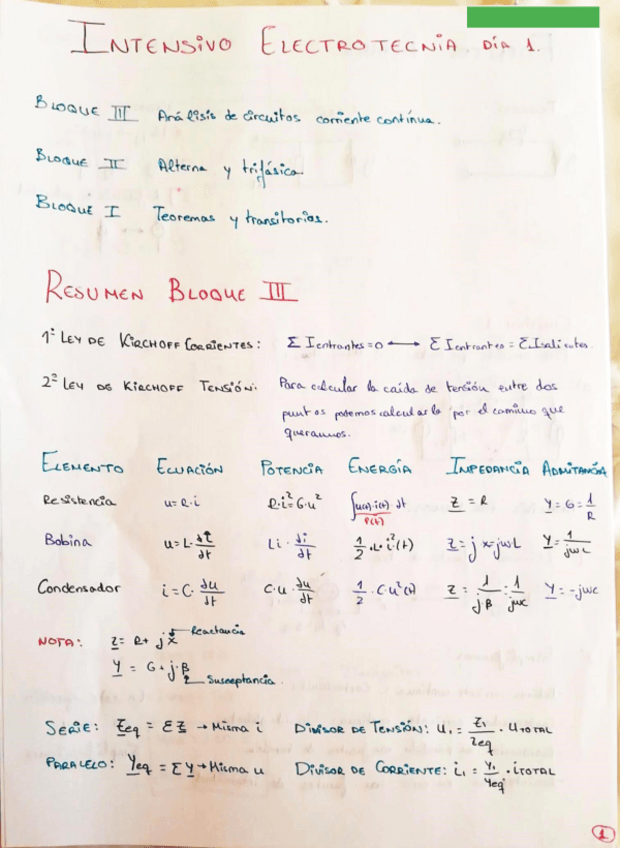 INTENSIVO ELECTROTECNIA DÍA 1.
BLOQUE III Análisis de circuitos corriente contínua.
BLOQUE II Alterna y trifásica.
BLOQUE I Teoremas y transitorios.
RESUMEN BLOQUE III
1ª LEY DE KIRCHOFF CORRIENTES: Σ Ientrantes = 0 ⟷ Σ Ientrantes = Σ Isalientes.
2ª LEY DE KIRCHOFF TENSIÓN: Para calcular la caída de tensión entre dos
puntos podemos calcularla por el camino que
queramos.
ELEMENTO ECUACIÓN POTENCIA ENERGÍA IMPEDANCIA ADMITANCIA
Resistencia u = R·i R·i² = G·u² ∫u(t)·i(t) dt Z = R Y = G = 1/R
P(t)
Bobina u = L· di/dt L i · di/dt 1/2 · L · i²(t) Z = j x = jωL Y = 1/jωL
Condensador i = C· du/dt C·u · du/dt 1/2 · C u²(t) Z = 1/j·B = 1/jωc Y = -jωc
NOTA: Z = R + j X → Reactancia
Y = G + j·B → Susceptancia.
SERIE: Zeq = Σ Z → Misma i DIVISOR DE TENSIÓN: U₁ = Z₁/Zeq · UTOTAL
PARALELO: Yeq = Σ Y → Misma u DIVISOR DE CORRIENTE: i₁ = Y₁/Yeq · iTOTAL
1